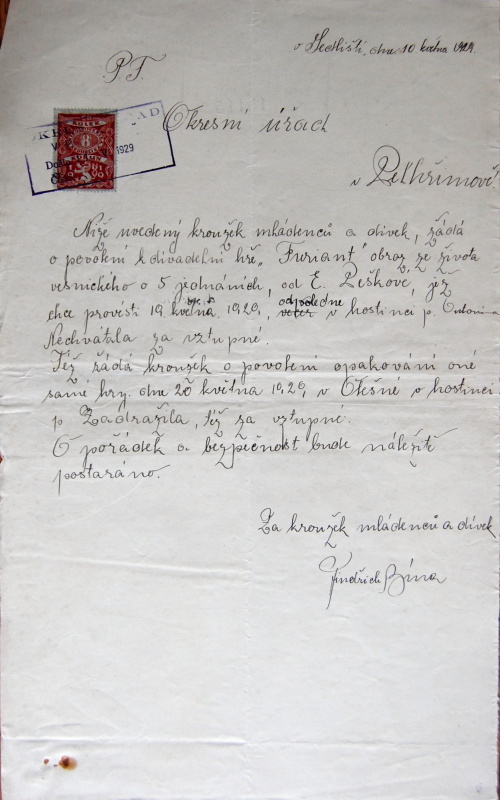 v Sedlišti, dne 10 května 1929.
P.T.
Okresní úřad
v Pelhřimově
1929
KOLEK
Níže uvedený kroužek mládenců a dívek, žádá
o povolení k divadelní hře „Furiant" obraz ze života
vesnického o 5 jednáních, od E. Peškové, jež
chce provésti 19 května 1929, odpoledne
večer v hostinci p. Antonína
Nechvátala za vztupné.
Též žádá kroužek o povolení opakování oné
samé hry. dne 20 května 1929, v Olešné v hostinci
p Zadražila, též za vztupné.
O pořádek a bezpečnost bude náležitě
postaráno.
Za kroužek mládenců a dívek
Jindřich Bína